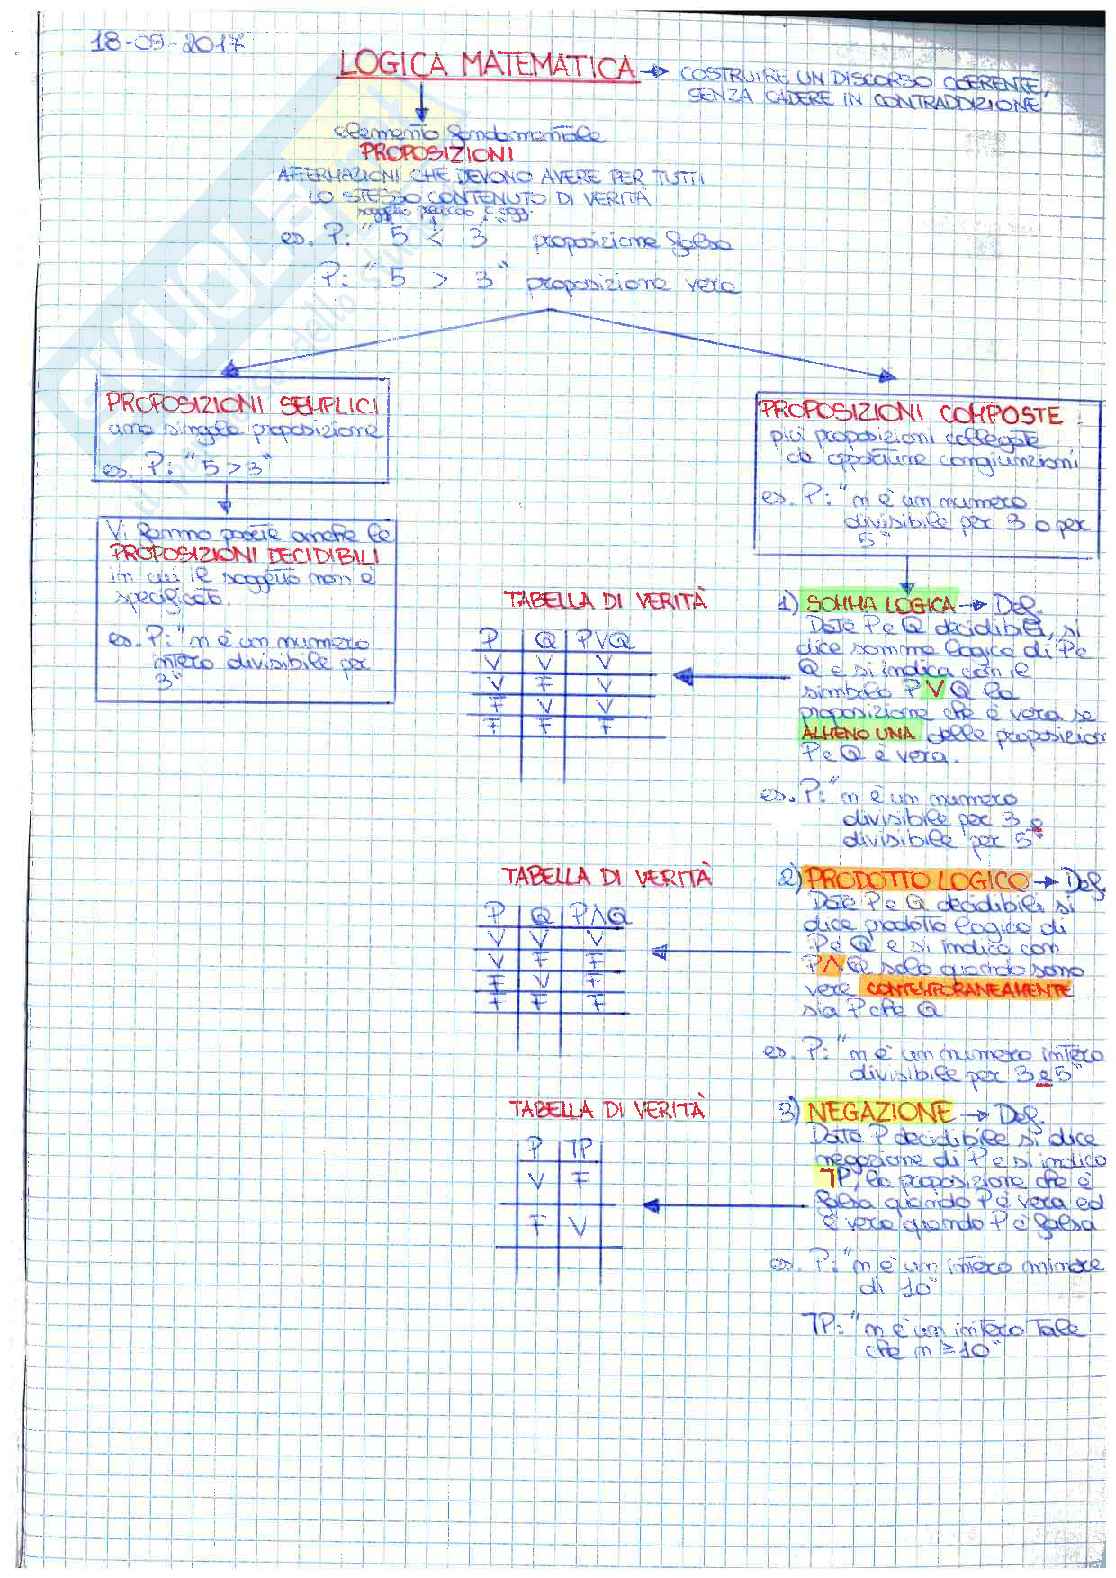 18-09-2017
LOGICA MATEMATICA → COSTRUIRE UN DISCORSO COERENTE,
SENZA CADERE IN CONTRADDIZIONE
elemento fondamentale
PROPOSIZIONI
AFFERMAZIONI CHE DEVONO AVERE PER TUTTI
LO STESSO CONTENUTO DI VERITÀ
soggetto predicato c. ogg.
es. P: "5 < 3 proposizione falsa
P: "5 > 3" proposizione vera
PROPOSIZIONI SEMPLICI
una singola proposizione
es. P: "5 > 3"
Vi fanno parte anche le
PROPOSIZIONI DECIDIBILI
in cui il soggetto non è
specificato.
es. P: "n è un numero
intero divisibile per
3"
PROPOSIZIONI COMPOSTE:
più proposizioni collegate
da opportune congiunzioni
es. P: "n è un numero
divisibile per 3 o per
5"
TABELLA DI VERITÀ
P Q P∨Q
V V V
V F V
F V V
F F F
1) SOMMA LOGICA → Def.
Date P e Q decidibili, si
dice somma logica di P e
Q e si indica con il
simbolo P V Q la
proposizione che è vera se
ALMENO UNA delle proposizion
P e Q è vera.
es. P: "n è un numero
divisibile per 3 o
divisibile per 5"
TABELLA DI VERITÀ
P Q P∧Q
V V V
V F F
F V F
F F F
2) PRODOTTO LOGICO → Def.
Date P e Q decidibili si
dice prodotto logico di
P e Q e si indica con
P∧Q solo quando sono
vere CONTEMPORANEAMENTE
sia P che Q
es. P: "n è un numero intero
divisibile per 3 e 5"
TABELLA DI VERITÀ
P ¬P
V F
F V
3) NEGAZIONE → Def.
Data P decidibile si dice
negazione di P e si indica
¬P, la proposizione che è
falsa quando P è vera ed
è vera quando P è falsa
es. P: "n è un intero minore
di 10"
¬P: "n è un intero tale
che n ≥ 10"